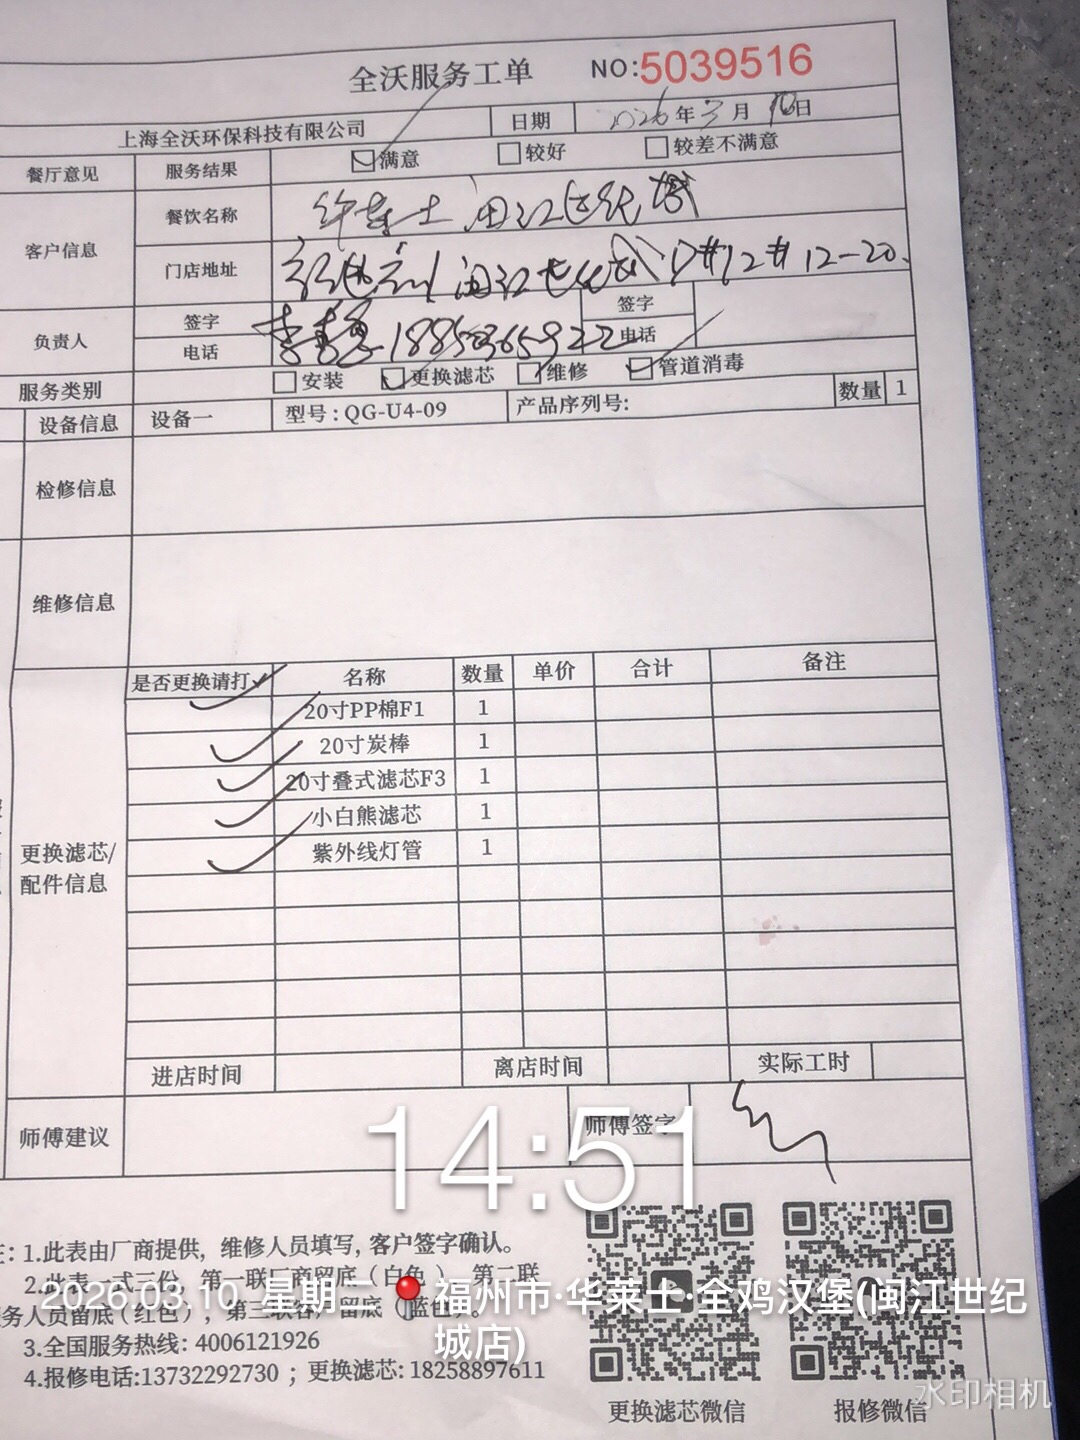 全沃服务工单 NO:5039516
上海全沃环保科技有限公司 日期 2026年3月10日
餐厅意见 服务结果 满意 较好 较差不满意
客户信息 餐饮名称 华莱士 闽江世纪城
门店地址 闽江世纪城 D#12#12-20
负责人 签字 签字
电话 电话
服务类别 安装 更换滤芯 维修 管道消毒
设备信息 设备一 型号:QG-U4-09 产品序列号: 数量 1
检修信息
维修信息
更换滤芯/配件信息
是否更换请打✓ 名称 数量 单价 合计 备注
✓ 20寸PP棉F1 1
✓ 20寸炭棒 1
✓ 20寸叠式滤芯F3 1
✓ 小白熊滤芯 1
✓ 紫外线灯管 1
进店时间 离店时间 实际工时
师傅建议 师傅签字
14:51
1.此表由厂商提供，维修人员填写，客户签字确认。
2.此表一式三份，第一联厂商留底（白色），第二联
务人员留底（红色），第三联客户留底（蓝色
3.全国服务热线: 4006121926
4.报修电话:13732292730 ；更换滤芯: 18258897611
2026.03.10 星期二 福州市·华莱士·全鸡汉堡(闽江世纪
城店)
更换滤芯微信 报修微信
水印相机